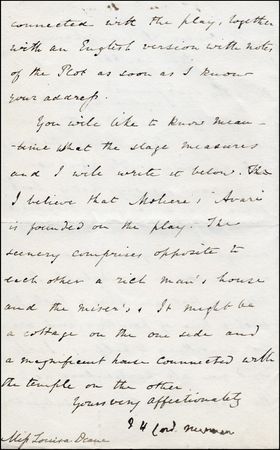 connected with the play, together
with an English version with notes
of the Plot as soon as I know
your address.
You will like to know mean-
time what the stage measures
and I will write it below. The
I believe that Moliere's Avare
is founded on the play. The
scenery comprises opposite to
each other a rich man's house
and the miser's. It might be
a cottage on the one side and
a magnificent house connected with
the temple on the other.
Yours very affectionately
J H Card. Newman
Miss Louisa Deane